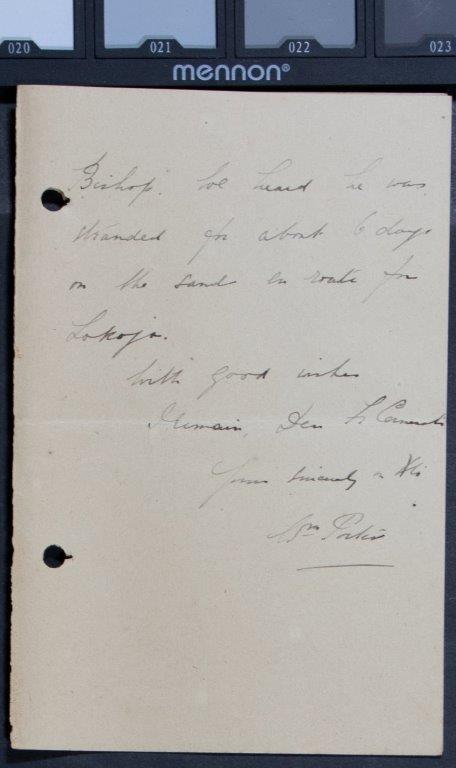 020 021 022 023
mennon®
Bishop. We heard he was
stranded for about 6 days
on the sand en route for
Lokoja.
With good wishes
I remain, Dear Fr
yours sincerely in Xto
Wm Porter